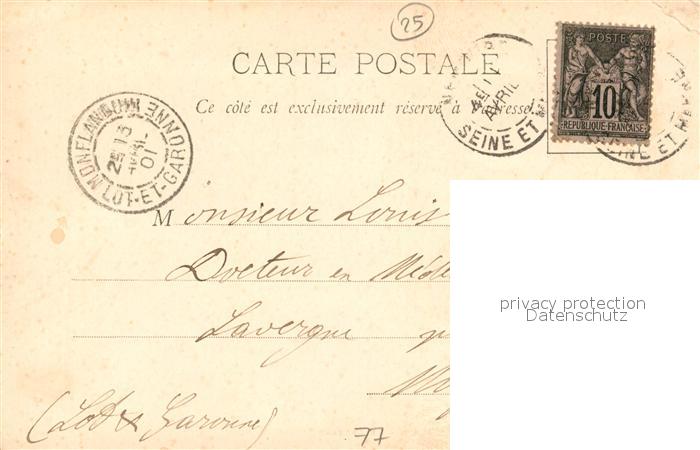 25
CARTE POSTALE
Ce côté est exclusivement réservé à l'adresse.
POSTE
10
REPUBLIQUE FRANÇAISE
4E
AVRIL
SEINE ET
SEINE ET M
MONFLANQUIN
2E 13 AVRIL 01
LOT-ET-GARONNE
Monsieur Louis
Docteur en Méde
Lavergne p
(Lot & Garonne)
77
privacy protection
Datenschutz